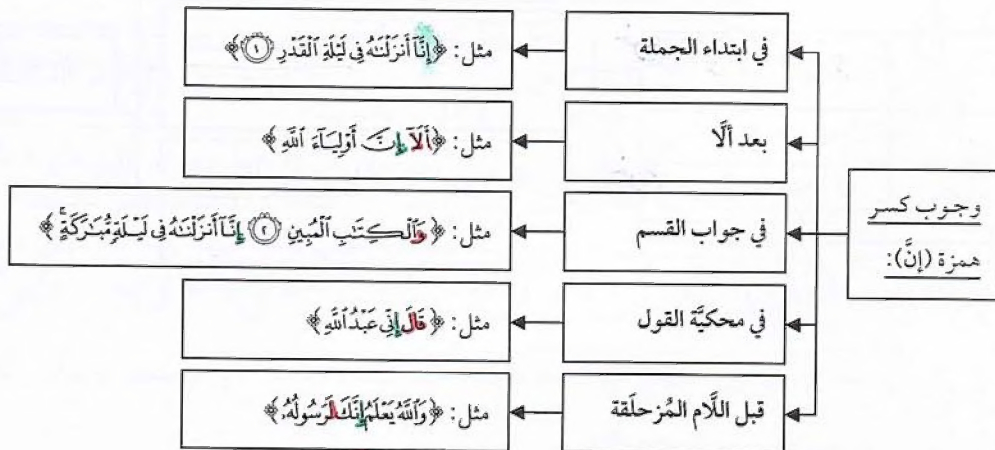 وجوب كسر
همزة (إنَّ):
في ابتداء الجملة
مثل: ﴿إِنَّآ أَنزَلۡنَٰهُ فِي لَيۡلَةِ ٱلۡقَدۡرِ ١﴾
بعد ألَّا
مثل: ﴿أَلَآ إِنَّ أَوۡلِيَآءَ ٱللَّهِ﴾
في جواب القسم
مثل: ﴿وَٱلۡكِتَٰبِ ٱلۡمُبِينِ ٢ إِنَّآ أَنزَلۡنَٰهُ فِي لَيۡلَةٖ مُّبَٰرَكَةٍۚ﴾
في محكيَّة القول
مثل: ﴿قَالَ إِنِّي عَبۡدُ ٱللَّهِ﴾
قبل اللَّام المُزحلَقة
مثل: ﴿وَٱللَّهُ يَعۡلَمُ إِنَّكَ لَرَسُولُهُۥ﴾